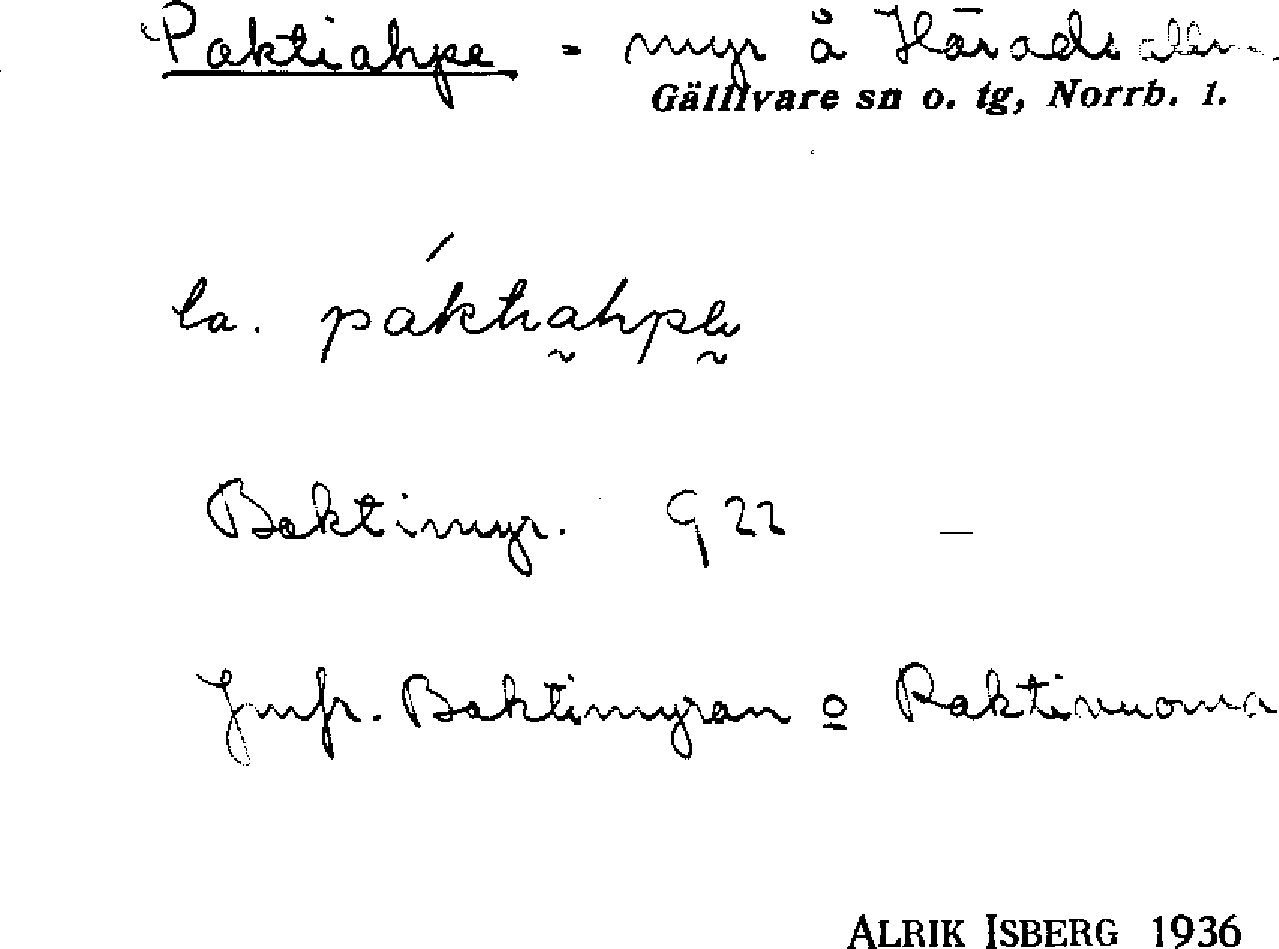 Paktiahpe = myr å Häradsallm.
Gällivare sn o. tg, Norrb. l.
la. páktiahpe
Baktimyr. G 22 —
Jmfr. Baktimyran o Paktivuoma
ALRIK ISBERG 1936